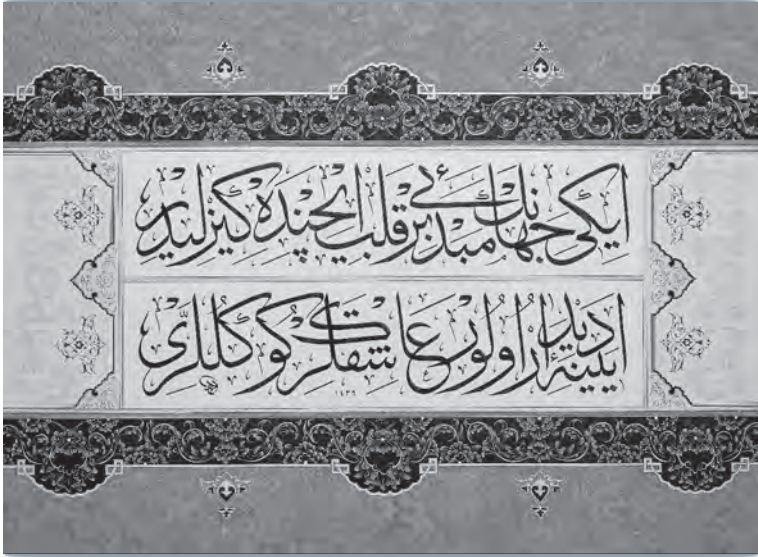 ایكی جهانك مبدئی بر قلب ایچنده گیزلیدر
آیینهٔ دیدار اولور عاشقلرڭ گوڭللری
١٤٣٩